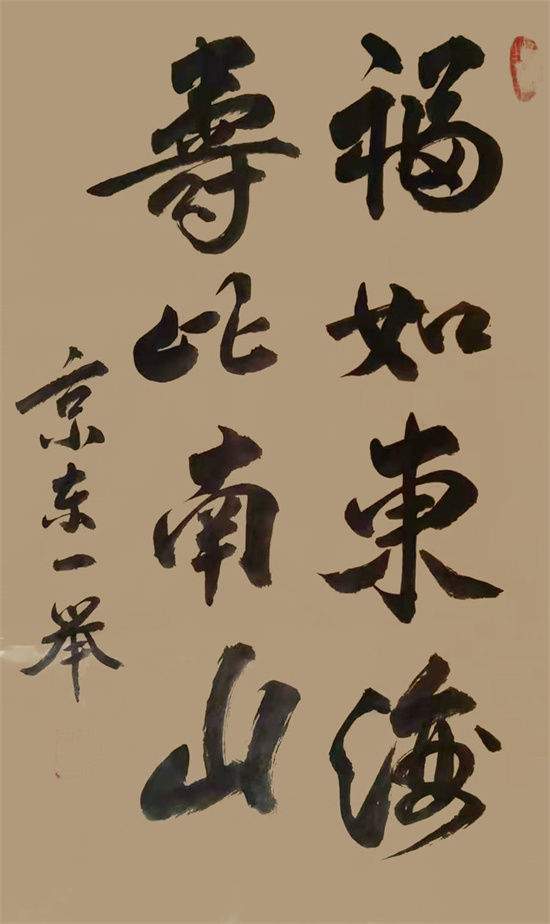 福如東海
壽比南山
京东一举